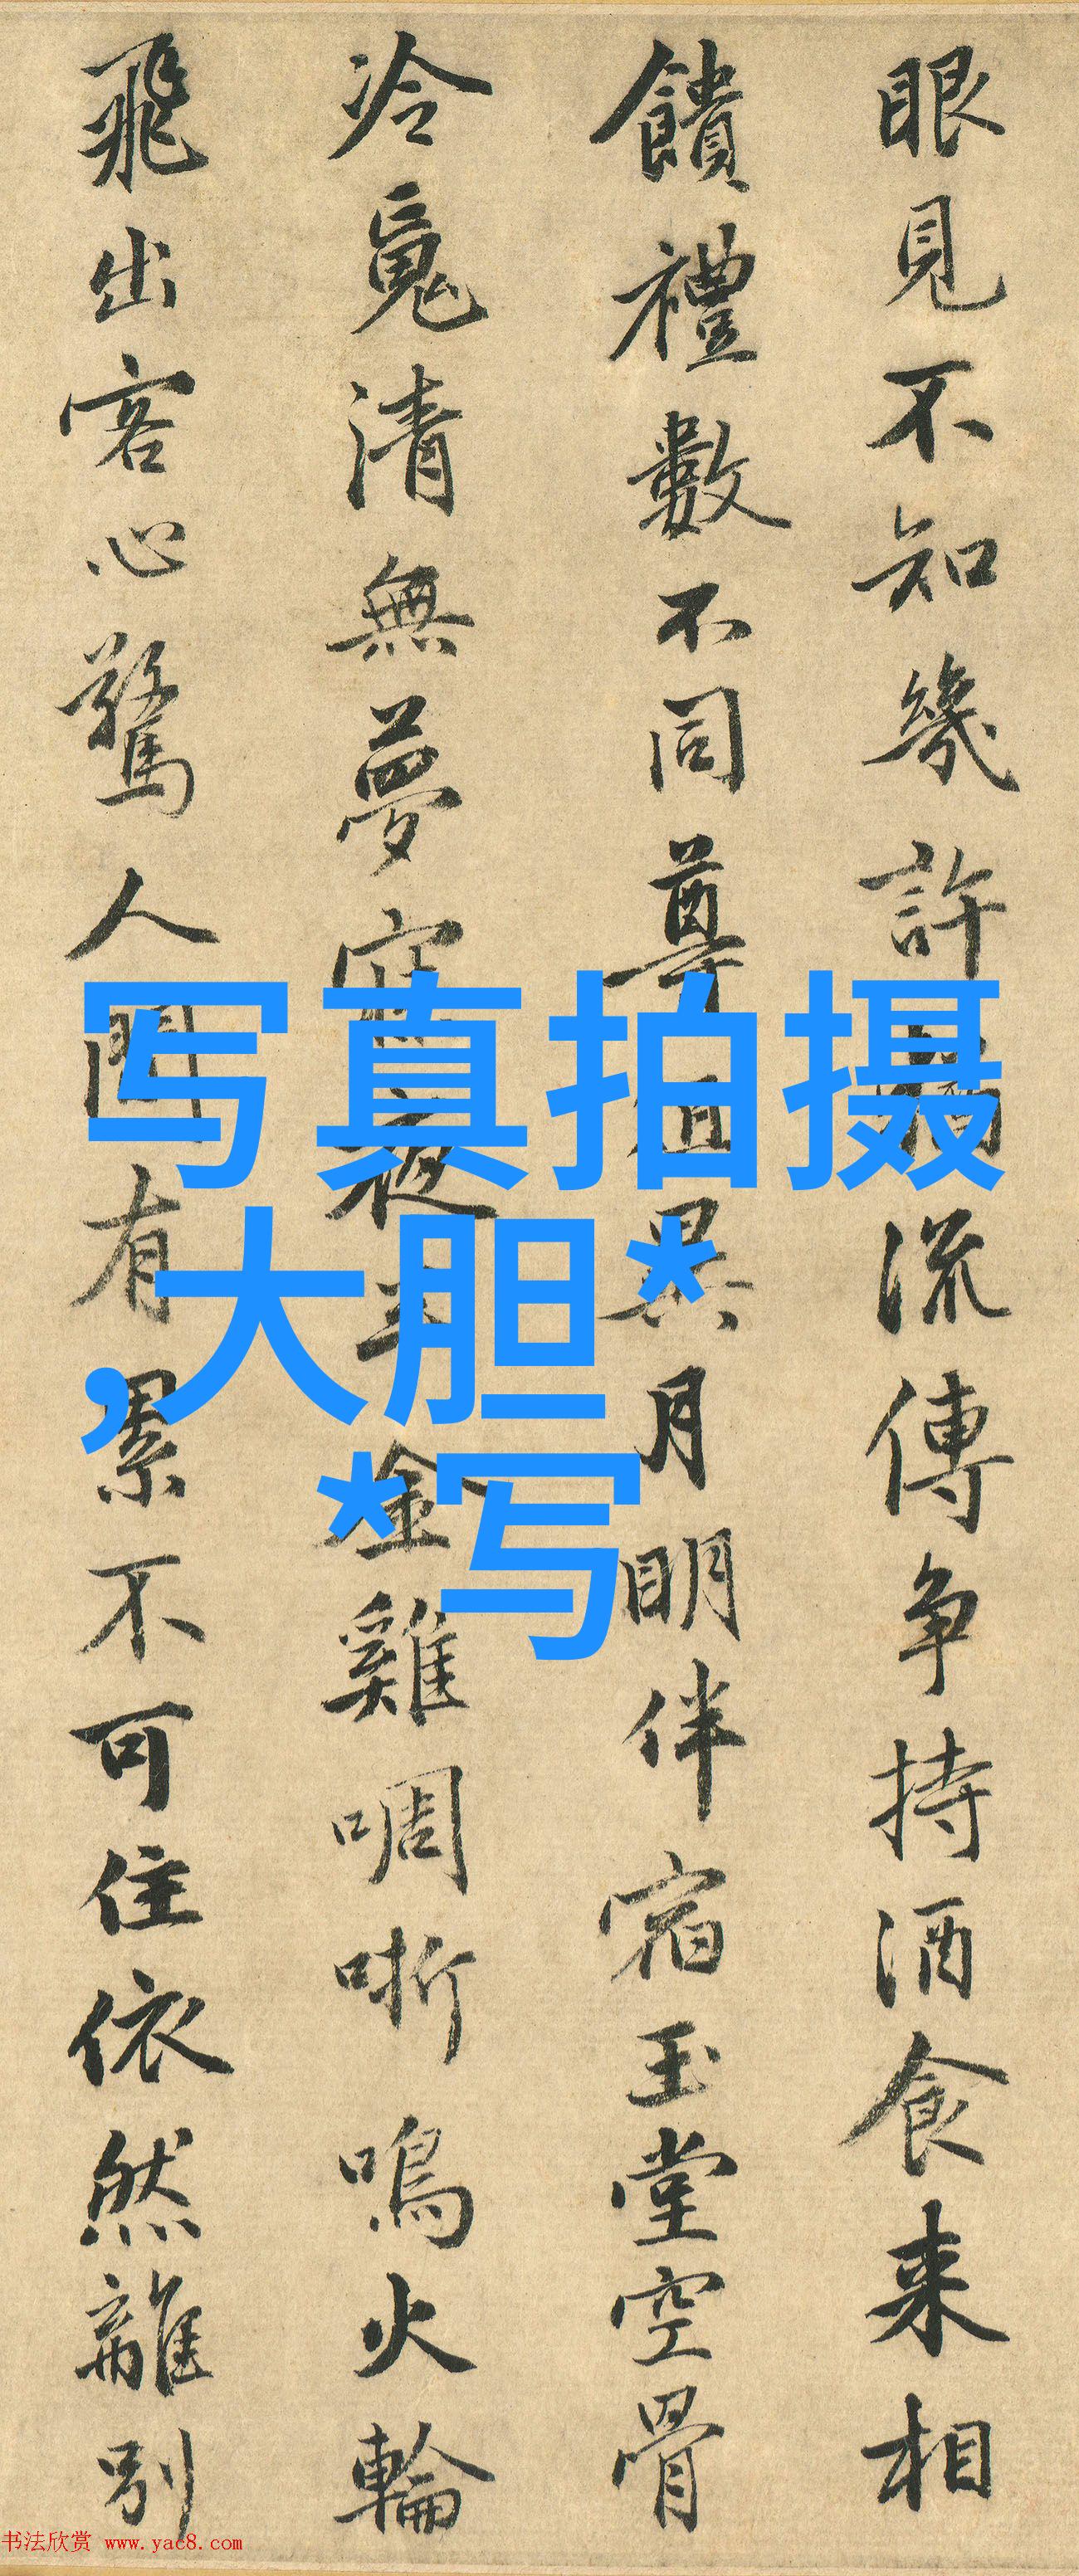 眼見不知幾許 流傳争持酒食来相
饋禮數不同尊俎異月明伴宿玉堂空骨
冷䰟清無夢寐夜 金雞啁哳鳴火輪
飛出客心驚人間有累不可住依然離別
写真拍摄
大胆*
,*写
书法欣赏 www.yac8.com